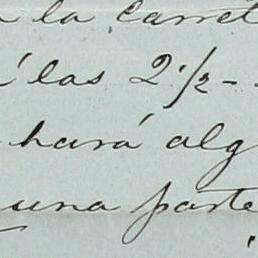 la carret
á las 2 1/2 -
hará alg
una parte